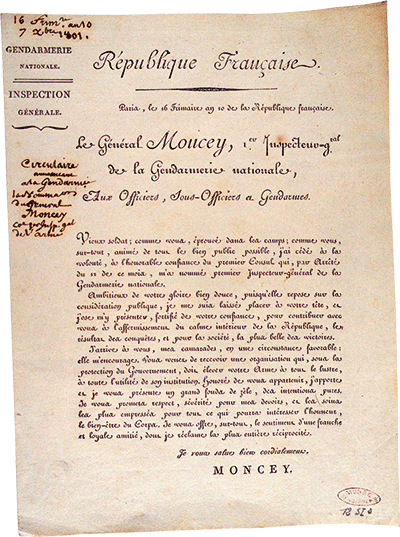 16 frim.re an 10
7 Xbre 1801.
GENDARMERIE
NATIONALE.
INSPECTION
GÉNÉRALE.
République Française.
Paris, le 16 Frimaire an 10 de la République française.
Le Général Moncey, 1.er Inspecteur-g.al
de la Gendarmerie nationale,
Aux Officiers, Sous-Officiers et Gendarmes.
Circulaire
annonçant
à la Gendarmie
la nomination
du général
Moncey
Vieux soldat; comme vous, éprouvé dans les camps; comme vous,
sur-tout, animé de tout le bien public possible, j'ai cédé à la
volonté, à l'honorable confiance du premier Consul qui, par Arrêté
du 11 de ce mois, m'a nommé premier Inspecteur-général de la
Gendarmerie nationale.
Ambitieux de votre gloire bien douce, puisqu'elle repose sur la
considération publique, je me suis laissé placer à votre tête, et
j'ose m'y présenter, fortifié de votre confiance, pour contribuer avec
vous à l'affermissement du calme intérieur de la République, le
résultat des conquêtes, et pour la société, la plus belle des victoires.
J'arrive à vous, mes camarades, en une circonstance favorable:
elle m'encourage. Vous venez de recevoir une organisation qui, sous la
protection du Gouvernement, doit élever votre Arme à tout le lustre,
à toute l'utilité de son institution. Honoré de vous appartenir, j'apporte
et je vous présente un grand fonds de zèle, des intentions pures.
Je vous promets respect, sévérité pour mes devoirs, et les soins
les plus empressés pour tout ce qui pourra intéresser l'honneur,
le bien-être du Corps. Je vous offre, sur-tout, le sentiment d'une franche
et loyale amitié, dont je réclame la plus entière réciprocité.
Je vous salue bien cordialement,
MONCEY.